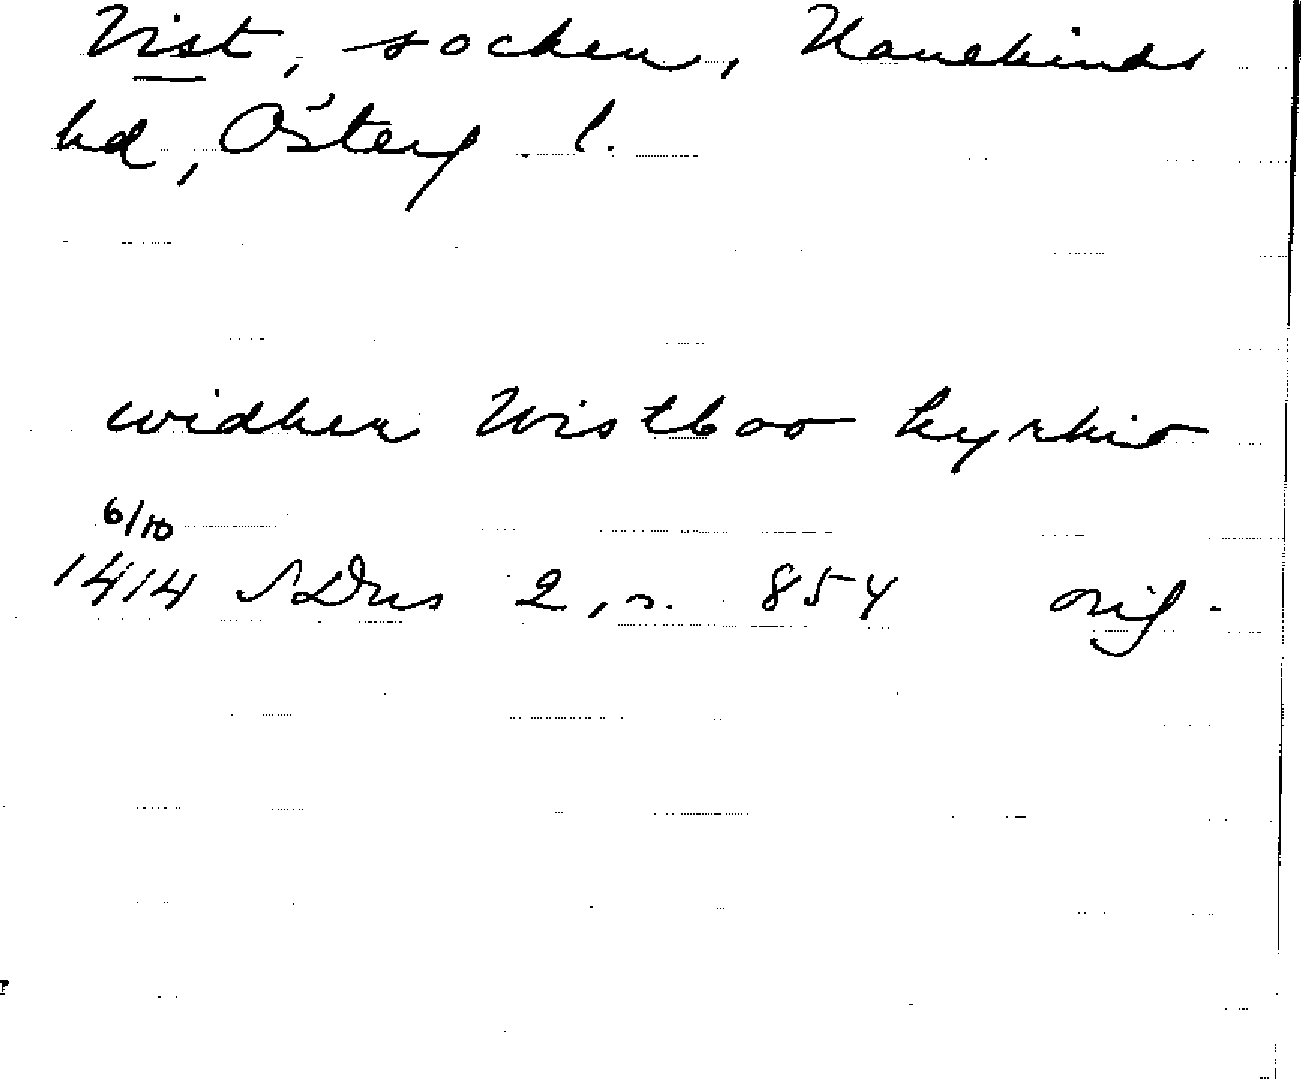 Vist, socken, Hanekinds
hd, Österg l.
widher Wistboo kyrkio
6/10
1414 SDns 2, s. 854 orig.